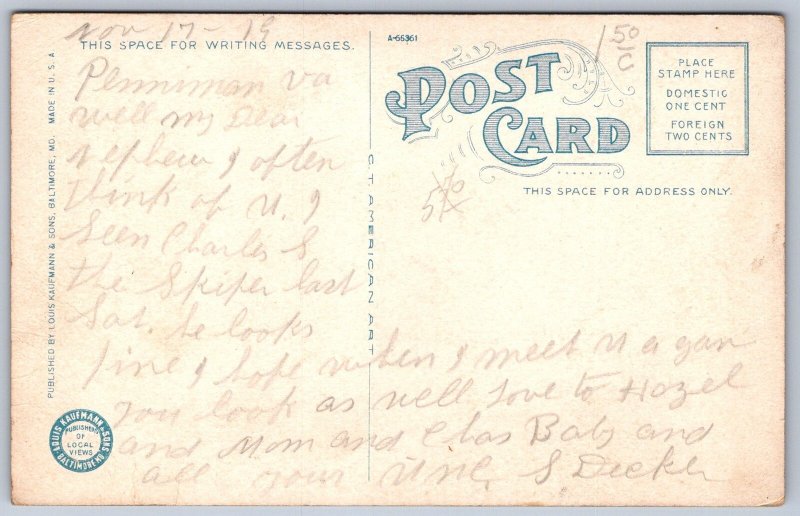 Nov 17 - 19
THIS SPACE FOR WRITING MESSAGES.
Penniman Va
well my Dear
nephew I often
think of u. I
seen Charles S
the Skiper last
Sat. he looks
fine I hope when I meet u a gan
you look as well love to Hazel
and Mom and Chas Baby and
all your Uncl S Decker
PUBLISHED BY LOUIS KAUFMANN & SONS, BALTIMORE, MD. MADE IN U.S.A.
LOUIS KAUFMANN & SONS
BALTIMORE MD.
PUBLISHERS
OF
LOCAL
VIEWS
C.T. AMERICAN ART
A-55361
POST
CARD
THIS SPACE FOR ADDRESS ONLY.
50
C
PLACE
STAMP HERE
DOMESTIC
ONE CENT
FOREIGN
TWO CENTS